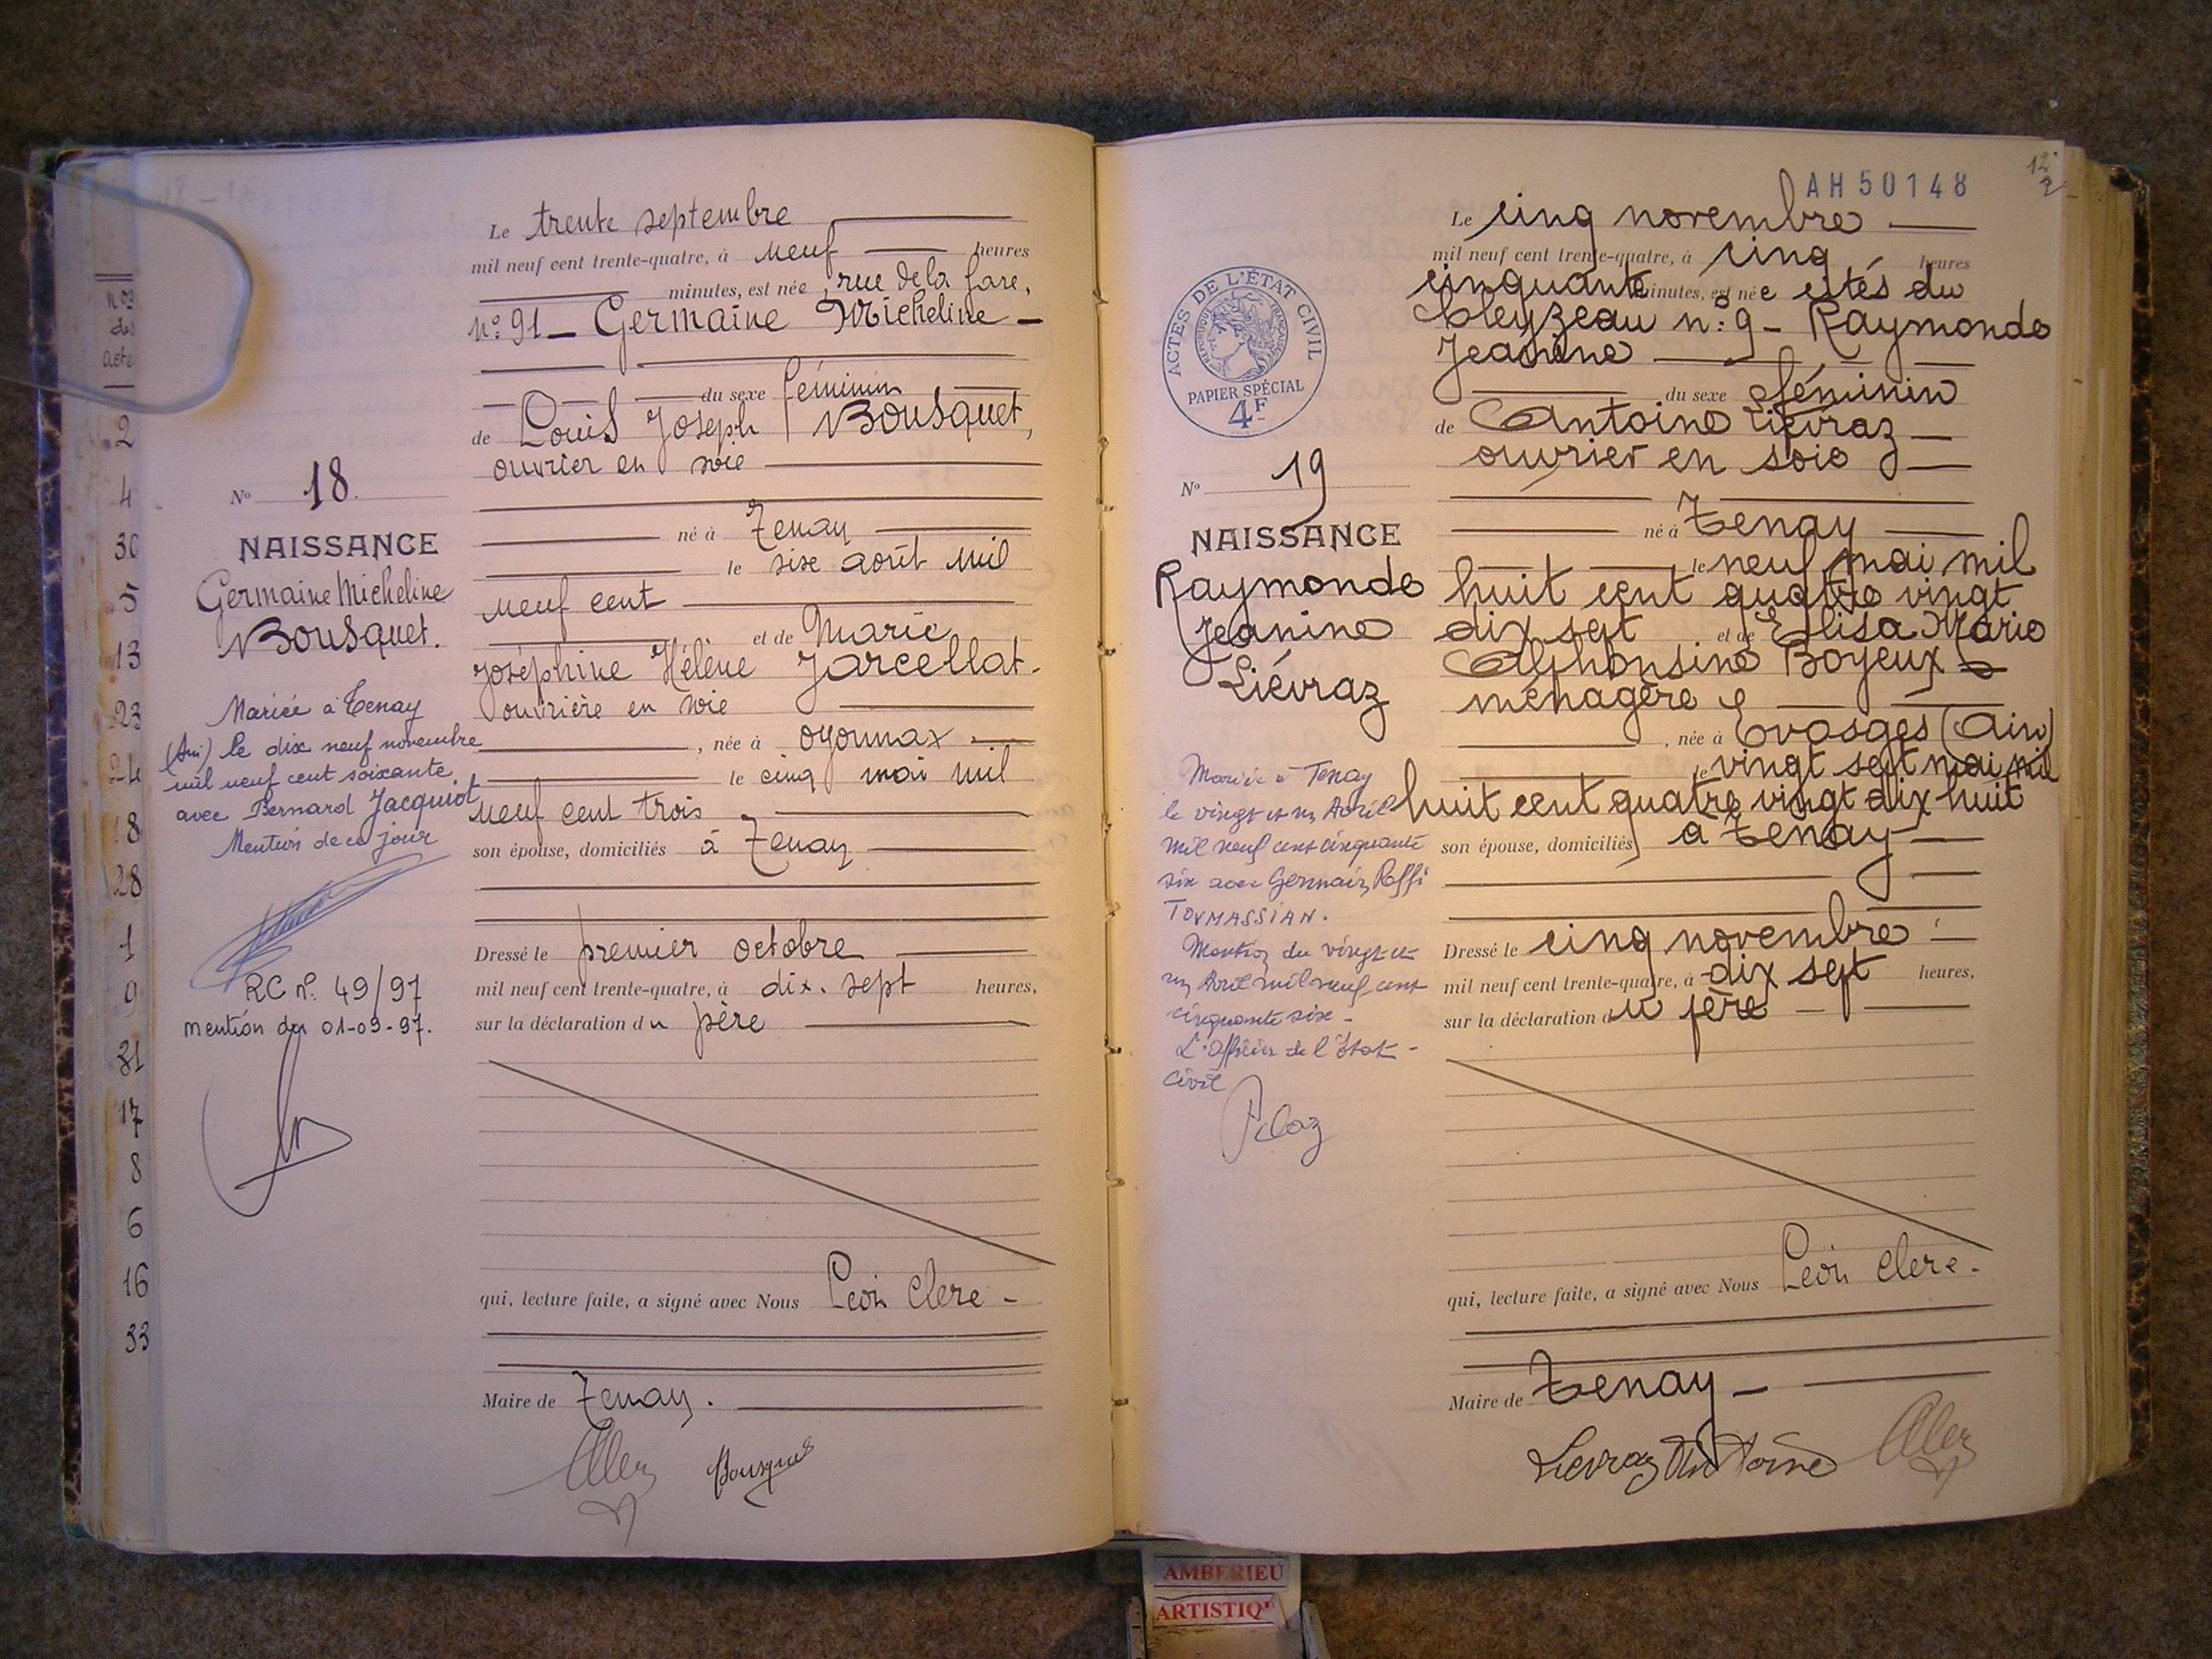 nos
des
acte
2
4
30
5
13
23
24
18
28
1
9
31
17
8
6
16
33
Le trente septembre
mil neuf cent trente-quatre, à neuf heures
minutes, est née, rue de la Gare,
n° 91 _ Germaine Micheline _
du sexe féminin
de Louis Joseph Bousquet,
ouvrier en soie
né à Tenay
le six août mil
neuf cent
et de Marie
Joséphine Hélène Jarcellat.
ouvrière en soie
, née à Oyonnax
le cinq mai mil
neuf cent trois
son épouse, domiciliés à Tenay
Dressé le premier octobre
mil neuf cent trente-quatre, à dix. sept heures,
sur la déclaration du père
qui, lecture faite, a signé avec Nous Léon Clerc -
Maire de Tenay.
Bousquet
N° 18.
NAISSANCE
Germaine Micheline
Bousquet.
Mariée à Tenay
(Ain) le dix neuf novembre
mil neuf cent soixante.
avec Bernard Jacquiot
Mention de ce jour
RC n° 49/97
mention du 01-09-97.
AH50148
12
2
Le cinq novembre
mil neuf cent trente-quatre, à cinq heures
cinquante minutes, est née cités du
Cleyzeau n° 9 - Raymonde
Jeanine
du sexe féminin
de Antoine Liévraz
ouvrier en soie
né à Tenay
le neuf mai mil
huit cent quatre vingt
dix sept et de Elisa Marie
Alphonsine Boyeux
ménagère
, née à Evosges (Ain)
le vingt sept mai mil
huit cent quatre vingt dix huit
son épouse, domiciliés à Tenay
Dressé le cinq novembre
mil neuf cent trente-quatre, à dix sept heures,
sur la déclaration du père
qui, lecture faite, a signé avec Nous Léon Clerc -
Maire de Tenay -
Lievraz Antoine
ACTES DE L'ÉTAT CIVIL
RÉPUBLIQUE FRANÇAISE
PAPIER SPÉCIAL
4F
N° 19
NAISSANCE
Raymonde
Jeanine
Liévraz
Mariée à Tenay
le vingt et un Avril
mil neuf cent cinquante
six avec Germain, Raffi
TOVMASSIAN.
Mention du vingt et
un Avril mil neuf cent
cinquante six -
L'Officier de l'Etat -
civil
AMBERIEU
ARTISTIQ